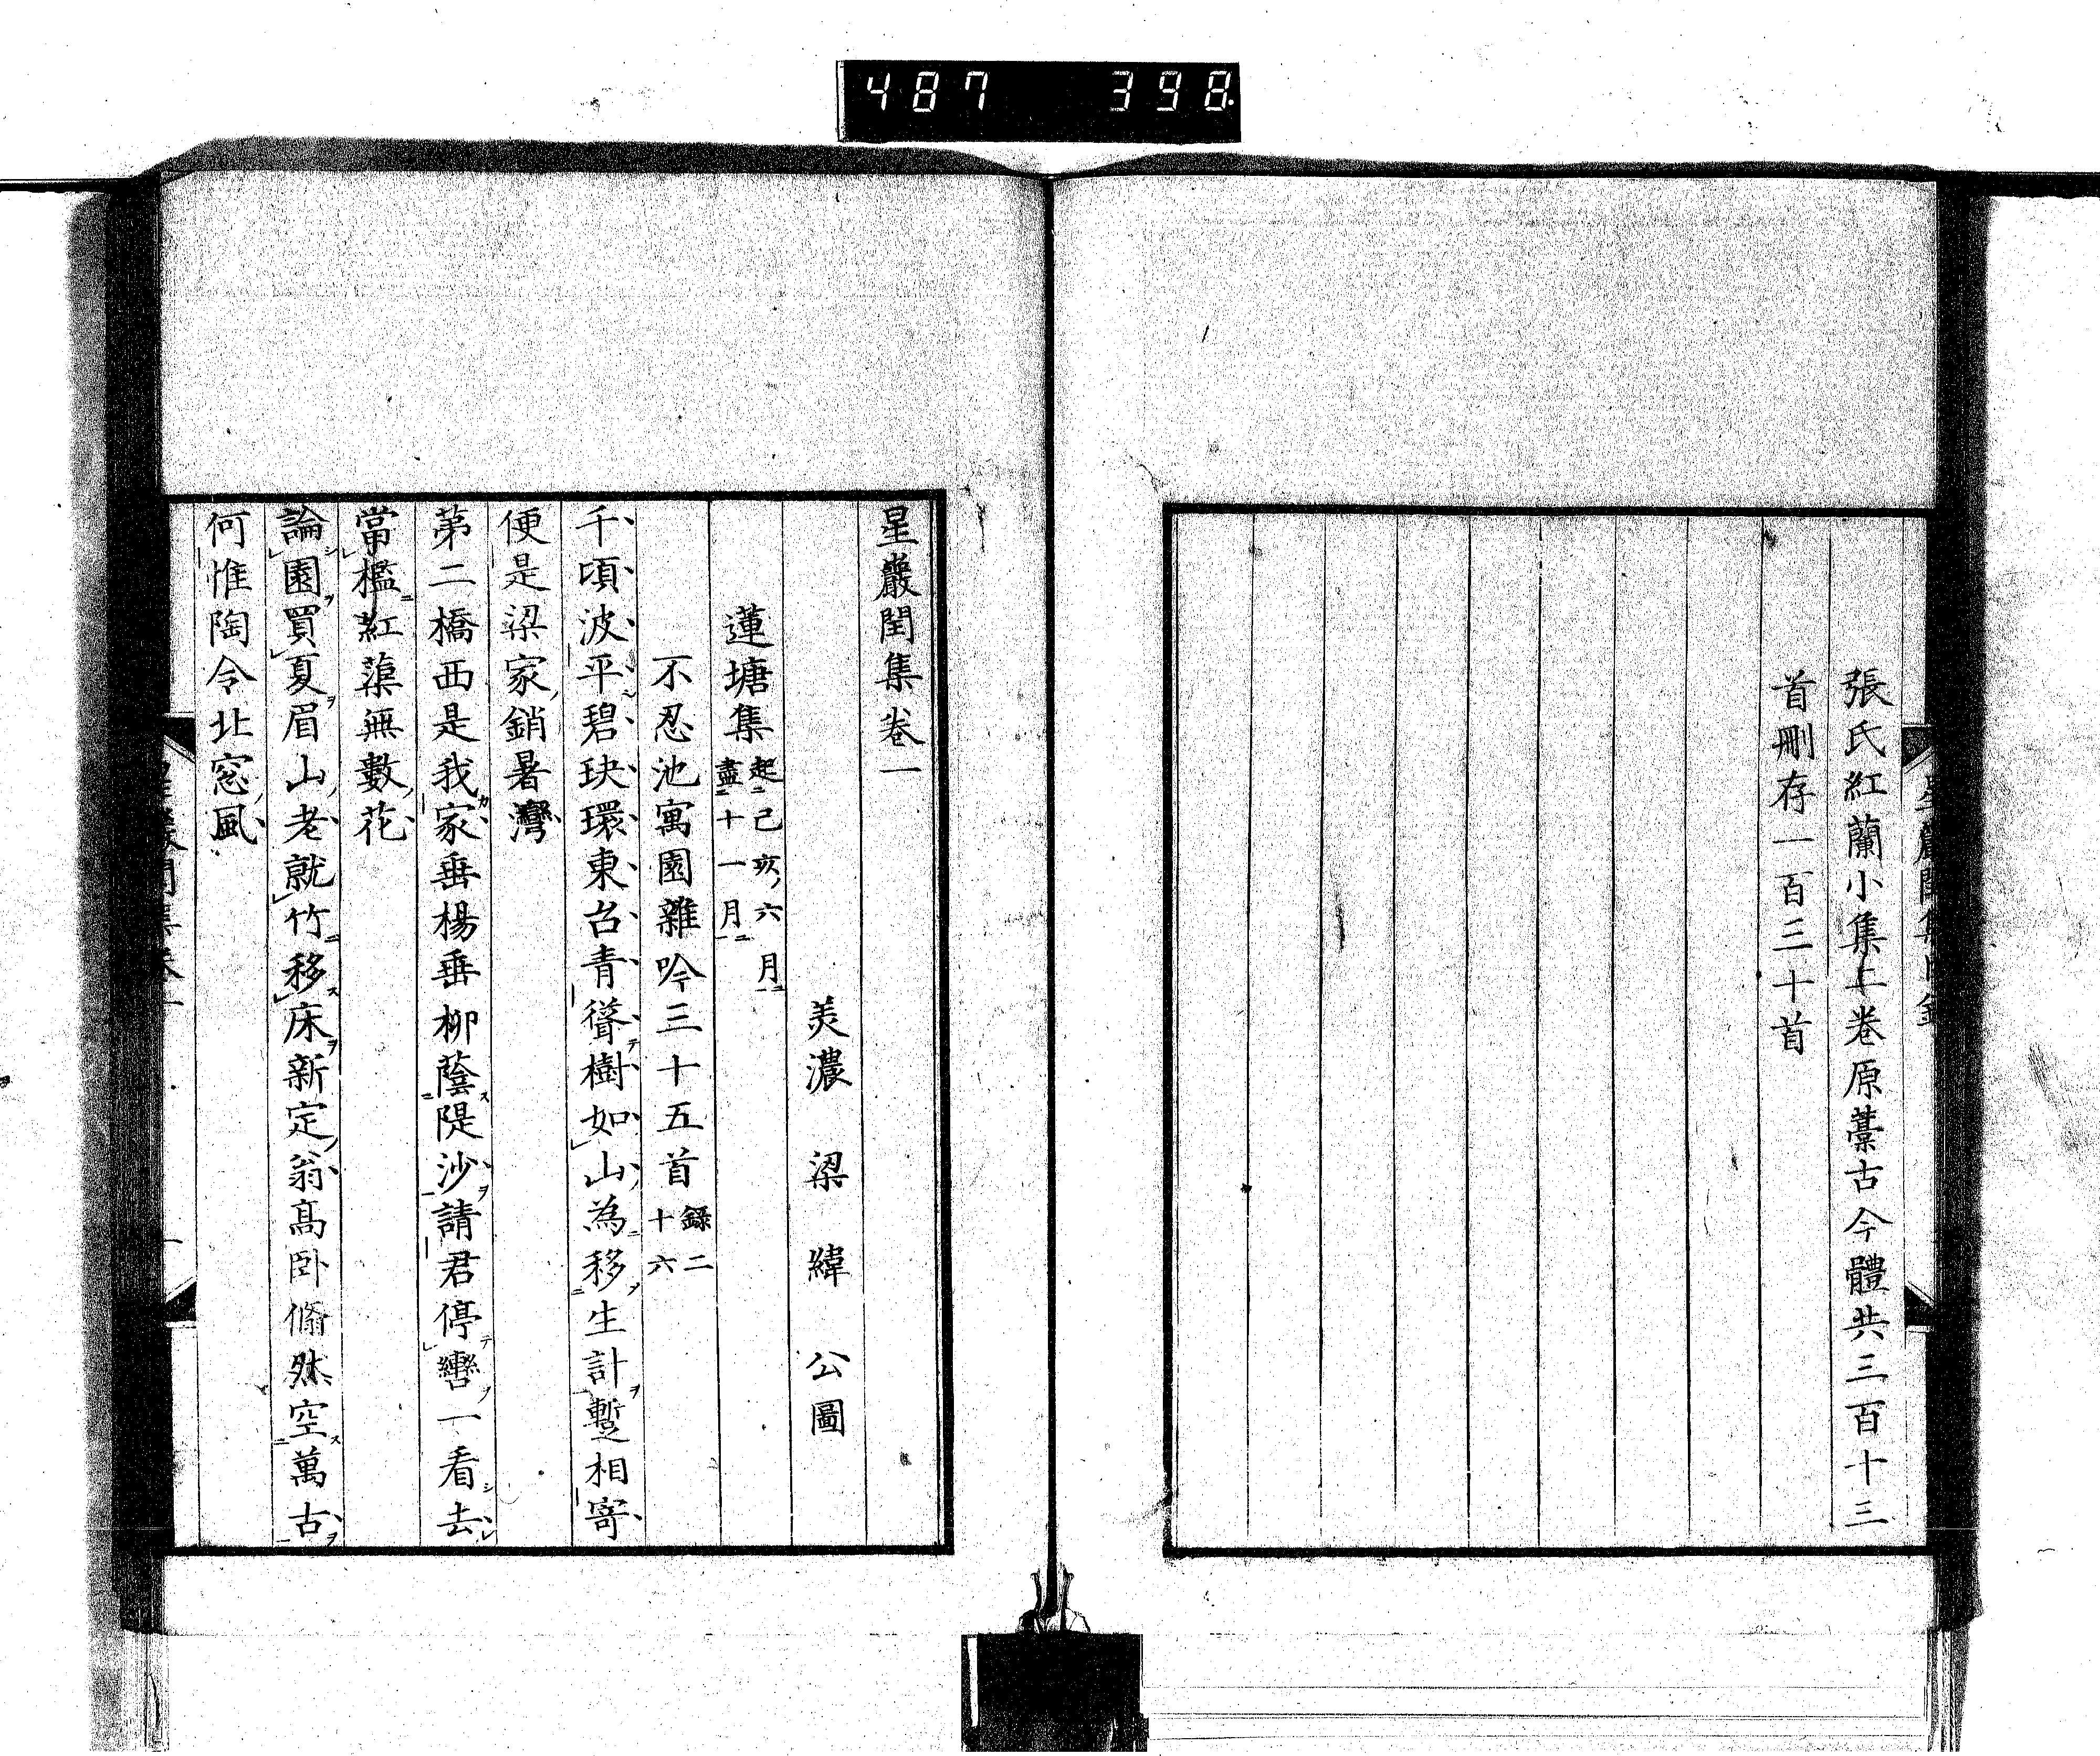 487 398
張氏紅蘭小集上卷原藁古今體共三百十三
首刪存一百三十首
星巖閏集卷一
美濃 梁緯 公圖
蓮塘集 起己亥六月 盡十一月
不忍池寓園雜吟三十五首 錄二十六
千頃波平碧玦環東台青聳樹如山為移生計暫相寄
便是梁家銷暑灣
第二橋西是我家垂楊垂柳蔭隄沙請君停轡一看去
當檻紅蕖無數花
論園買夏眉山老就竹移床新定翁高臥翛然空萬古
何惟陶令北窓風